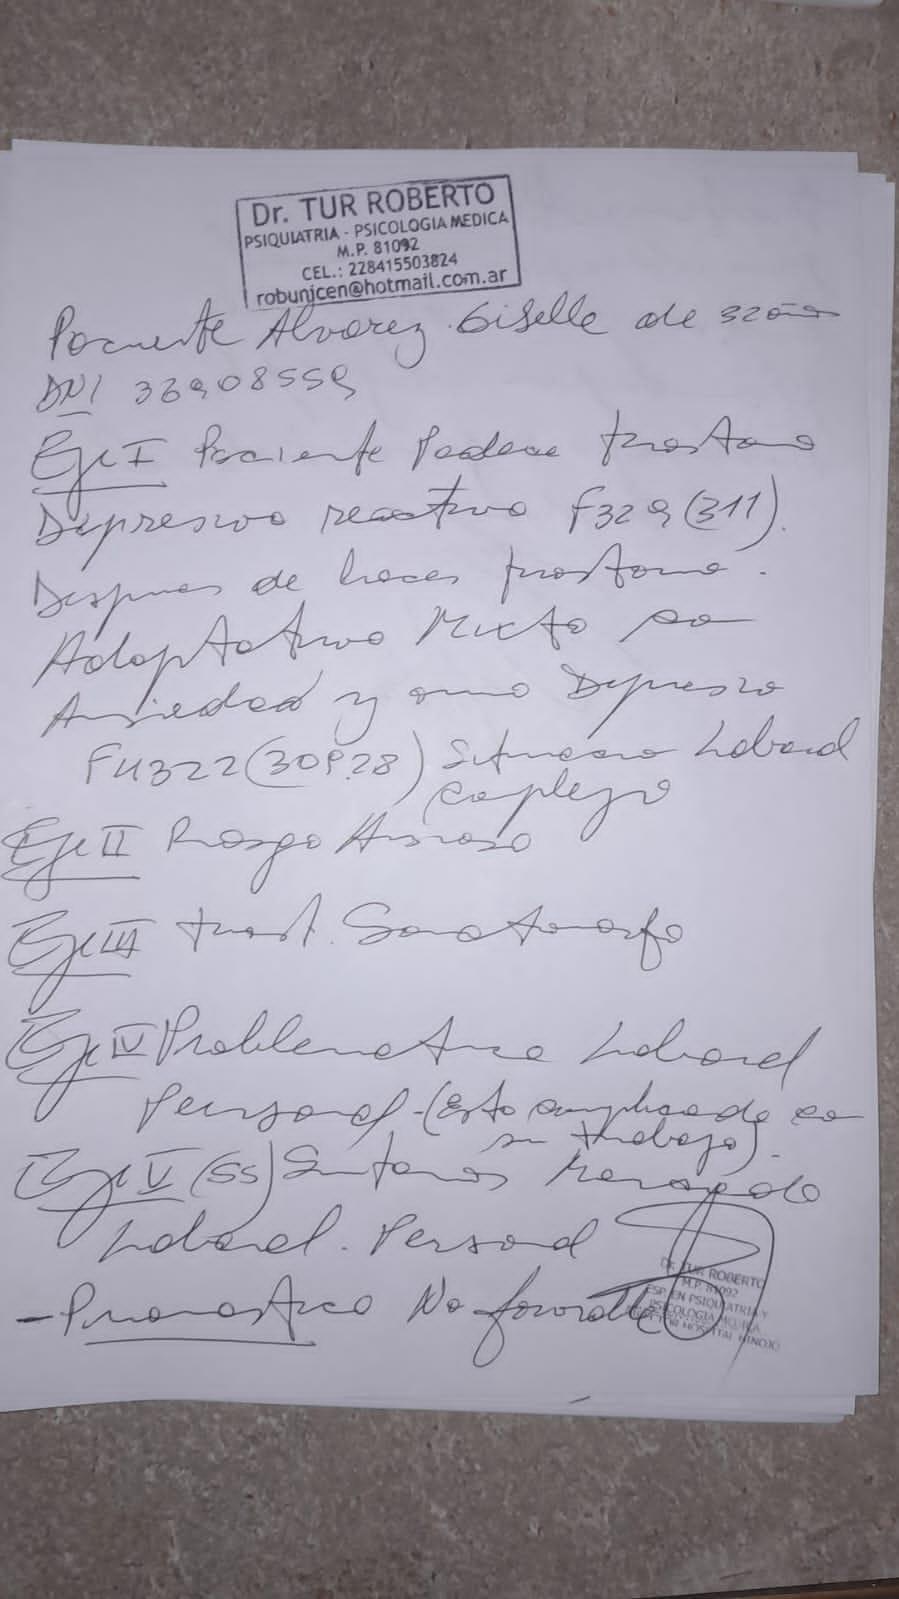 Dr. TUR ROBERTO
PSIQUIATRIA - PSICOLOGIA MEDICA
M.P. 81092
CEL.: 228415503824
robunicen@hotmail.com.ar
Paciente Alvarez Giselle de 32 años
DNI 36908559
Eje I Paciente Padece trastorno
Depresivo reactivo F329 (311).
Despues de hacer trastorno
Adaptativo Mixto con
Ansiedad y animo Depresivo
F4322 (309.28) Situacion Laboral
compleja
Eje II Rasgo Ansioso
Eje III trast. Somatomorfo
Eje IV Problematica Laboral
Personal - (Esta complicada con
su trabajo).
Eje V (55) Sintomas Moderado
Laboral. Personal
- Pronostico No favorable
Dr. TUR ROBERTO
M.P. 81092
ESP. EN PSIQUIATRIA Y
PSICOLOGIA MEDICA
HOSPITAL HINOJO